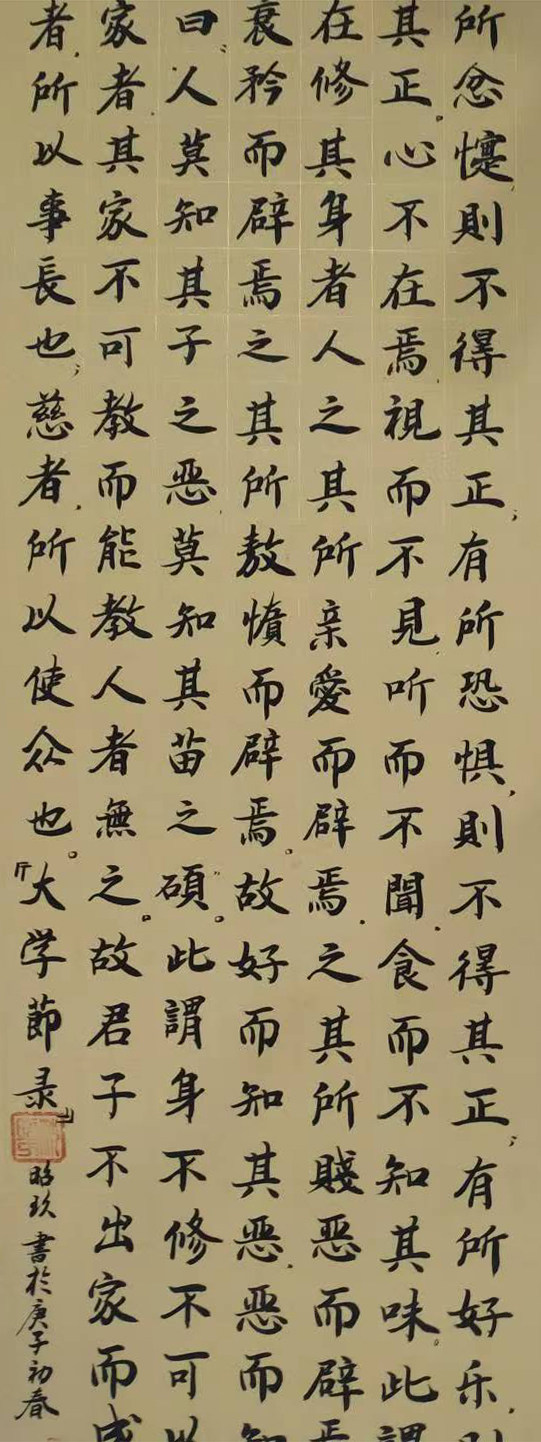 所忿懥，則不得其正；有所恐惧，則不得其正；有所好乐，則
其正。心不在焉，視而不見，听而不聞，食而不知其味。此謂
在修其身者人之其所亲愛而辟焉，之其所賤惡而辟焉
衰矜而辟焉之其所敖惰而辟焉。故好而知其恶，恶而知
曰：人莫知其子之恶，莫知其苗之碩。此謂身不修不可以
家者，其家不可教而能教人者無之。故君子不出家而成
者，所以事長也；慈者，所以使众也。『大学節录』
昭玖書於庚子初春